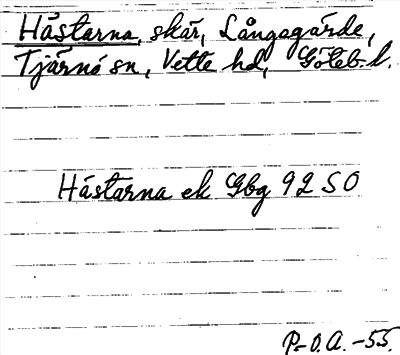 Hästarna, skär, Långagärde,
Tjärnö sn, Vette hd, Göteb. l.
Hästarna ek Gbg 92 SO
P.-O.A. -55.